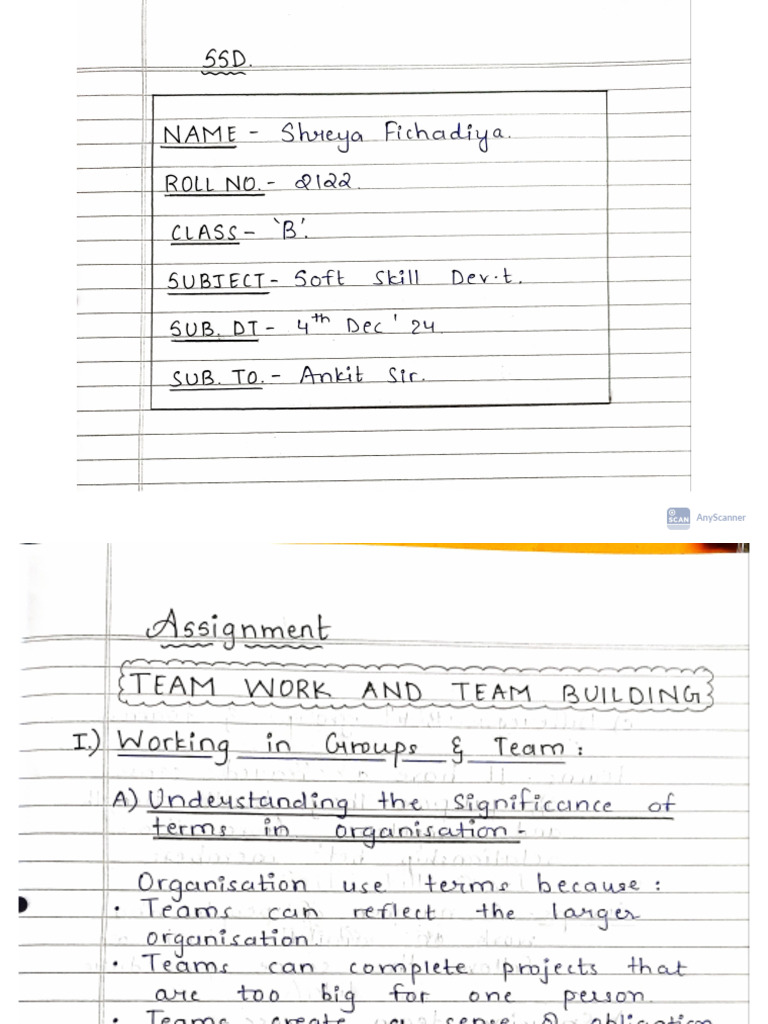 SSD.
NAME - Shreya Fichadiya.
ROLL NO. - 2122.
CLASS - 'B'.
SUBJECT - Soft Skill Dev.t.
SUB. DT - 4th Dec' 24
SUB. TO. - Ankit Sir.
SCAN AnyScanner
Assignment
TEAM WORK AND TEAM BUILDING
I.) Working in Groups & Team :
A) Understanding the significance of
terms in organisation -
Organisation use terms because :
• Teams can reflect the larger
organisation.
• Teams can complete projects that
are too big for one person.
• Teams create a sense of obligation